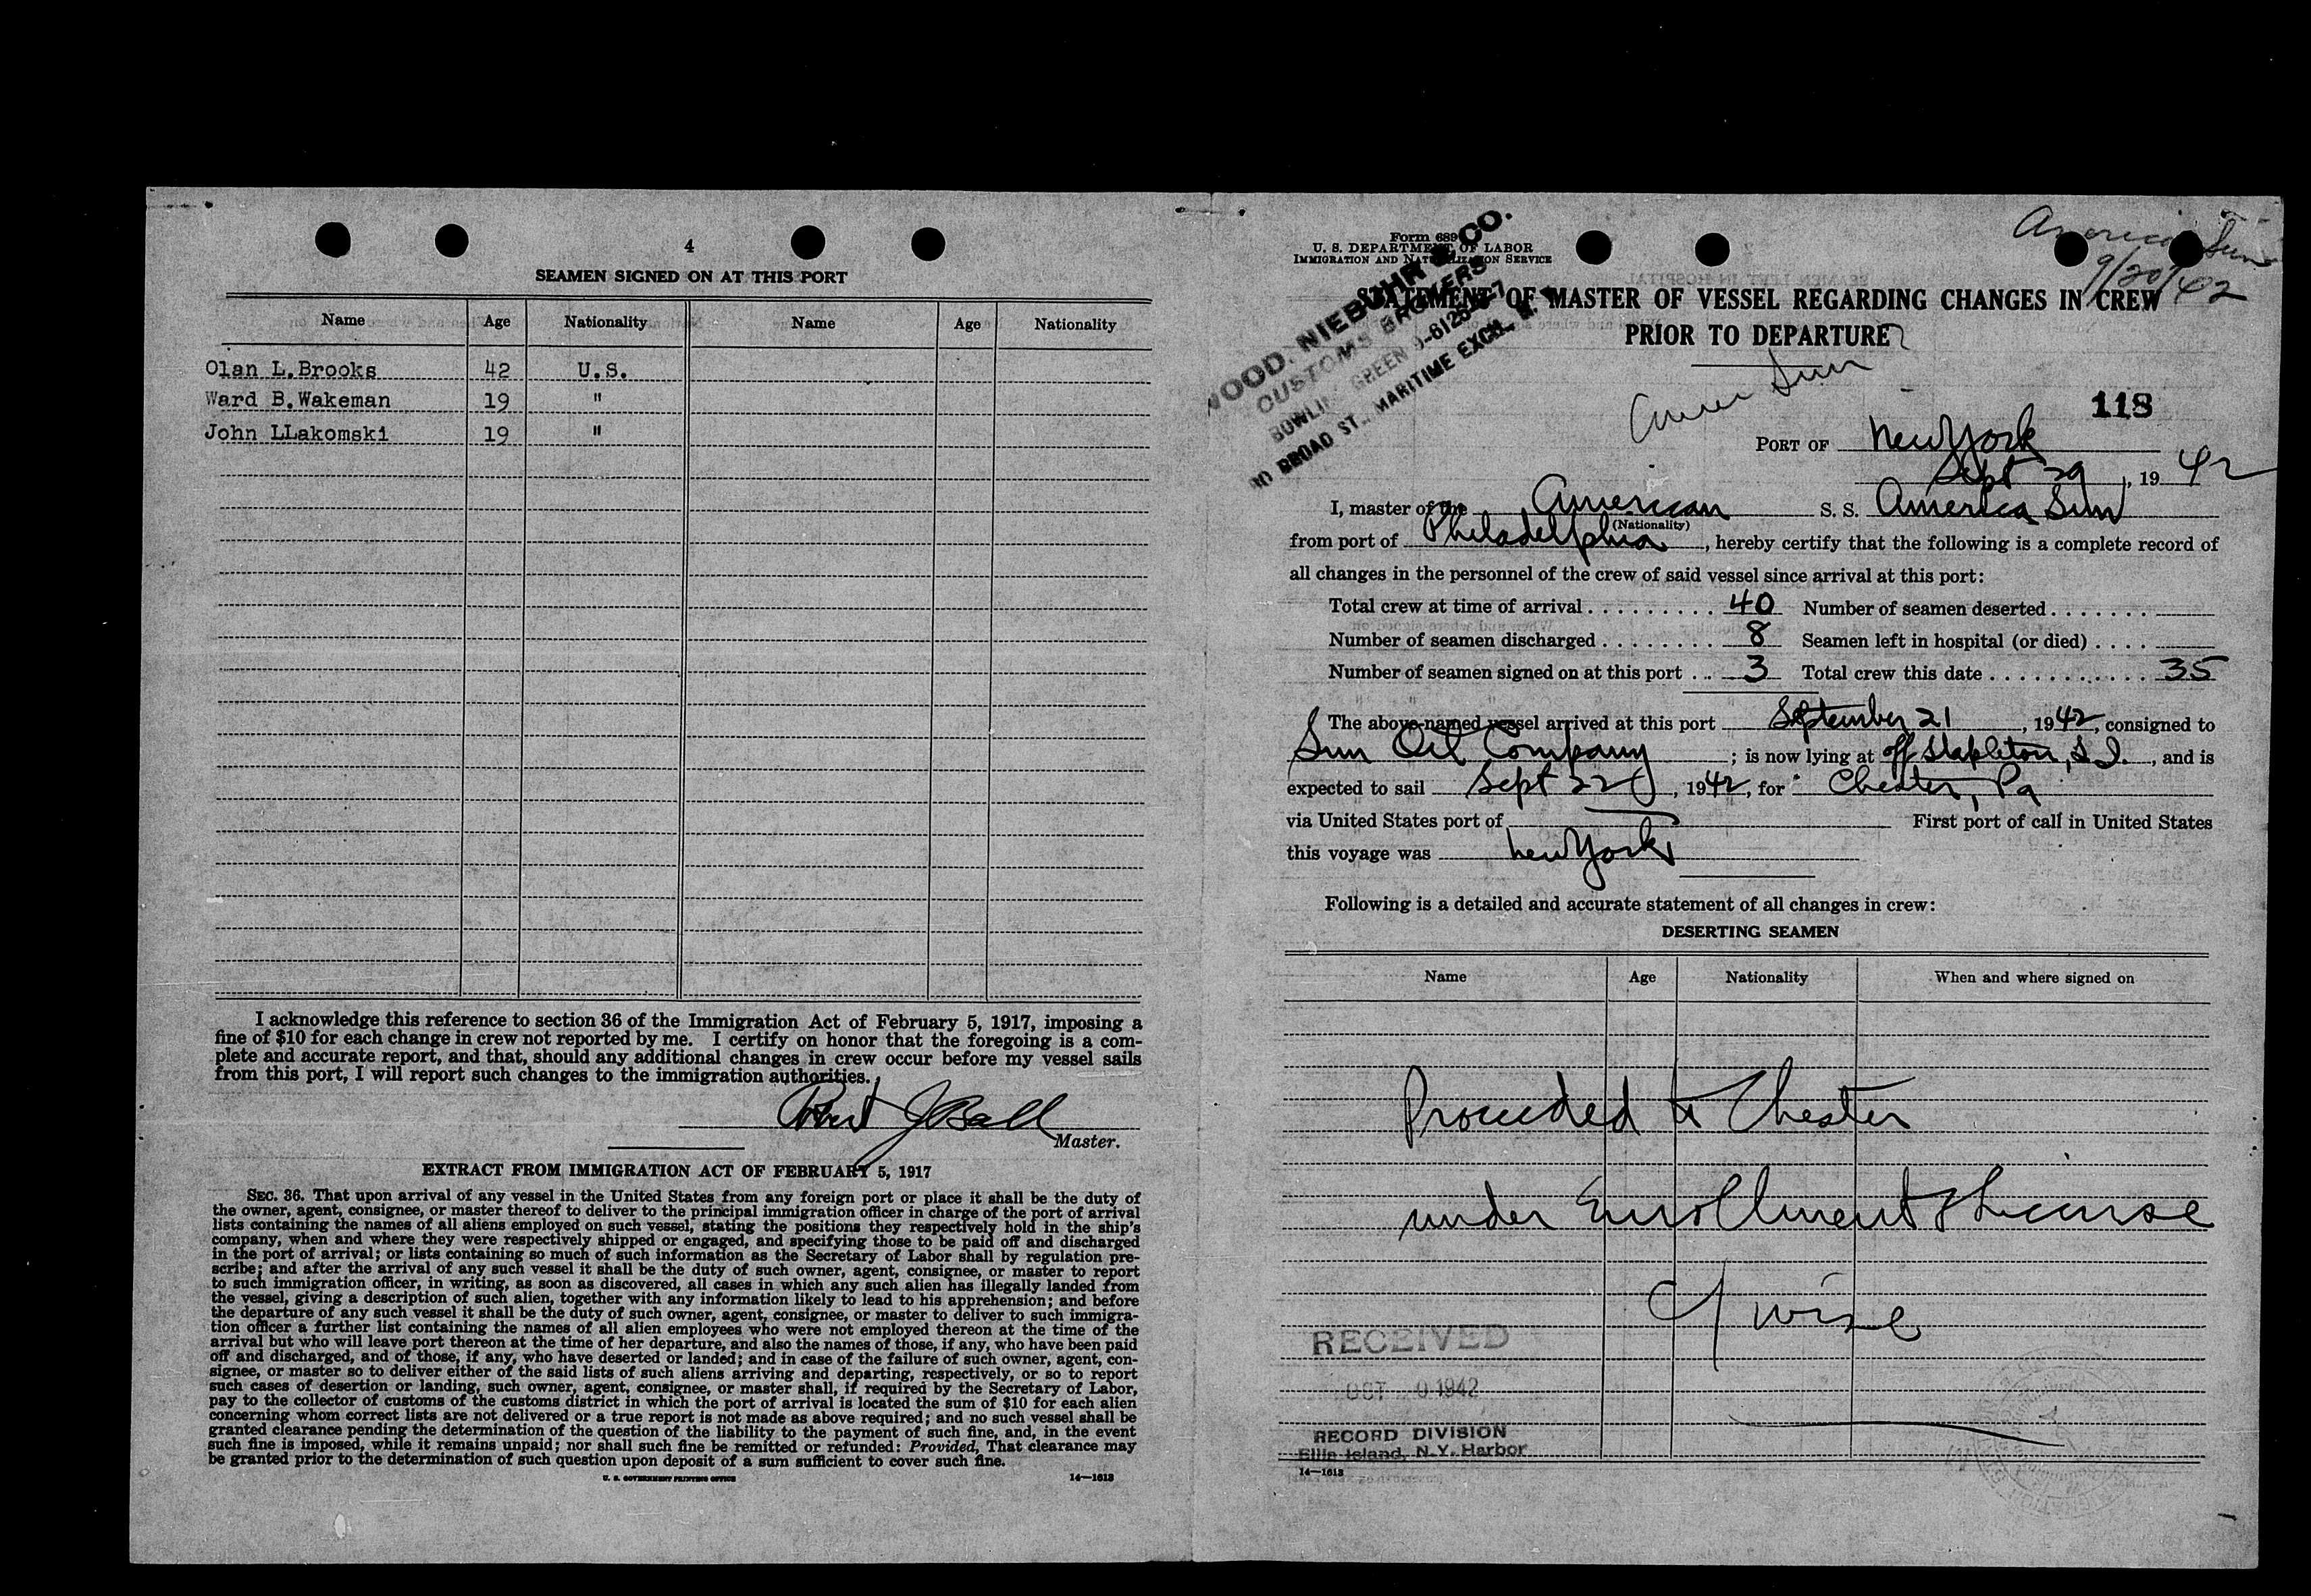 4
SEAMEN SIGNED ON AT THIS PORT
Name Age Nationality Name Age Nationality
Olan L.Brooks 42 U.S.
Ward B.Wakeman 19 "
John LLakomski 19 "
I acknowledge this reference to section 36 of the Immigration Act of February 5, 1917, imposing a
fine of $10 for each change in crew not reported by me. I certify on honor that the foregoing is a com-
plete and accurate report, and that, should any additional changes in crew occur before my vessel sails
from this port, I will report such changes to the immigration authorities.
Robert J Ball
Master.
EXTRACT FROM IMMIGRATION ACT OF FEBRUARY 5, 1917
SEC. 36. That upon arrival of any vessel in the United States from any foreign port or place it shall be the duty of
the owner, agent, consignee, or master thereof to deliver to the principal immigration officer in charge of the port of arrival
lists containing the names of all aliens employed on such vessel, stating the positions they respectively hold in the ship's
company, when and where they were respectively shipped or engaged, and specifying those to be paid off and discharged
in the port of arrival; or lists containing so much of such information as the Secretary of Labor shall by regulation pre-
scribe; and after the arrival of any such vessel it shall be the duty of such owner, agent, consignee, or master to report
to such immigration officer, in writing, as soon as discovered, all cases in which any such alien has illegally landed from
the vessel, giving a description of such alien, together with any information likely to lead to his apprehension; and before
the departure of any such vessel it shall be the duty of such owner, agent, consignee, or master to deliver to such immigra-
tion officer a further list containing the names of all alien employees who were not employed thereon at the time of the
arrival but who will leave port thereon at the time of her departure, and also the names of those, if any, who have been paid
off and discharged, and of those, if any, who have deserted or landed; and in case of the failure of such owner, agent, con-
signee, or master so to deliver either of the said lists of such aliens arriving and departing, respectively, or so to report
such cases of desertion or landing, such owner, agent, consignee, or master shall, if required by the Secretary of Labor,
pay to the collector of customs of the customs district in which the port of arrival is located the sum of $10 for each alien
concerning whom correct lists are not delivered or a true report is not made as above required; and no such vessel shall be
granted clearance pending the determination of the question of the liability to the payment of such fine, and, in the event
such fine is imposed, while it remains unpaid; nor shall such fine be remitted or refunded: Provided, That clearance may
be granted prior to the determination of such question upon deposit of a sum sufficient to cover such fine.
U. S. GOVERNMENT PRINTING OFFICE 14—1613
America Sun
9/20/42
Form 689
U. S. DEPARTMENT OF LABOR
IMMIGRATION AND NATURALIZATION SERVICE
WOOD, NIEBUHR & CO.
CUSTOMS BROKERS
BOWLING GREEN 9-6125-6-7
BROAD ST., MARITIME EXCH., N. Y.
STATEMENT OF MASTER OF VESSEL REGARDING CHANGES IN CREW
PRIOR TO DEPARTURE
Amer Sun
118
PORT OF New York
Sept 29, 1942
I, master of the American S. S. America Sun
(Nationality)
from port of Philadelphia, hereby certify that the following is a complete record of
all changes in the personnel of the crew of said vessel since arrival at this port:
Total crew at time of arrival 40 Number of seamen deserted
Number of seamen discharged 8 Seamen left in hospital (or died)
Number of seamen signed on at this port 3 Total crew this date 35
The above-named vessel arrived at this port September 21, 1942, consigned to
Sun Oil Company; is now lying at off Stapleton, S.I., and is
expected to sail Sept 22, 1942, for Chester, Pa
via United States port of First port of call in United States
this voyage was New York
Following is a detailed and accurate statement of all changes in crew:
DESERTING SEAMEN
Name Age Nationality When and where signed on
Proceeded to Chester
under Enrollment & License
RECEIVED
OCT 1942
RECORD DIVISION
Ellis Island, N.Y. Harbor
14—1613